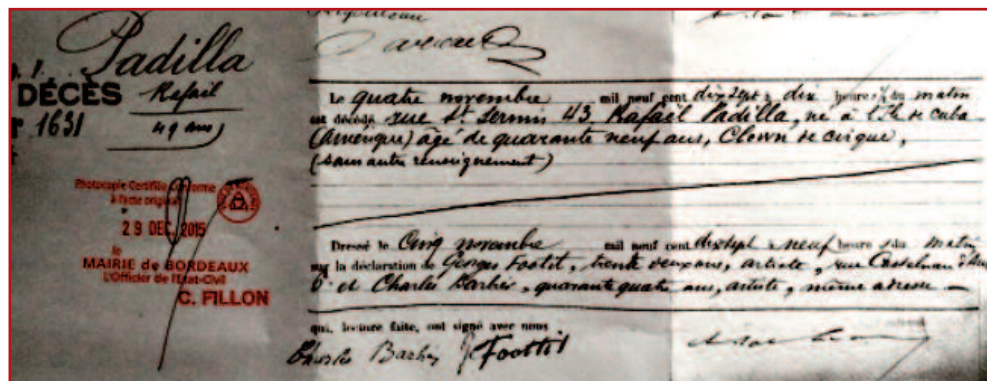 Padilla
DÉCÈS Rafail
N° 1631 49 ans
Photocopie Certifiée Conforme
à l'acte original
29 DEC. 2015
le
MAIRIE de BORDEAUX
L'Officier de l'Etat-Civil
C. FILLON
Le quatre novembre mil neuf cent dix sept à dix heures du matin
est décédé rue St Sernin 43 Rafaël Padilla, né à l'île de Cuba
(Amérique) âgé de quarante neuf ans, Clown de cirque,
(sans autre renseignement)
Dressé le Cinq novembre mil neuf cent dix sept à neuf heures du matin
sur la déclaration de Georges Footit, trente deux ans, artiste, rue
et Charles Barbès, quarante quatre ans, artiste, même adresse
qui, lecture faite, ont signé avec nous
Charles Footit